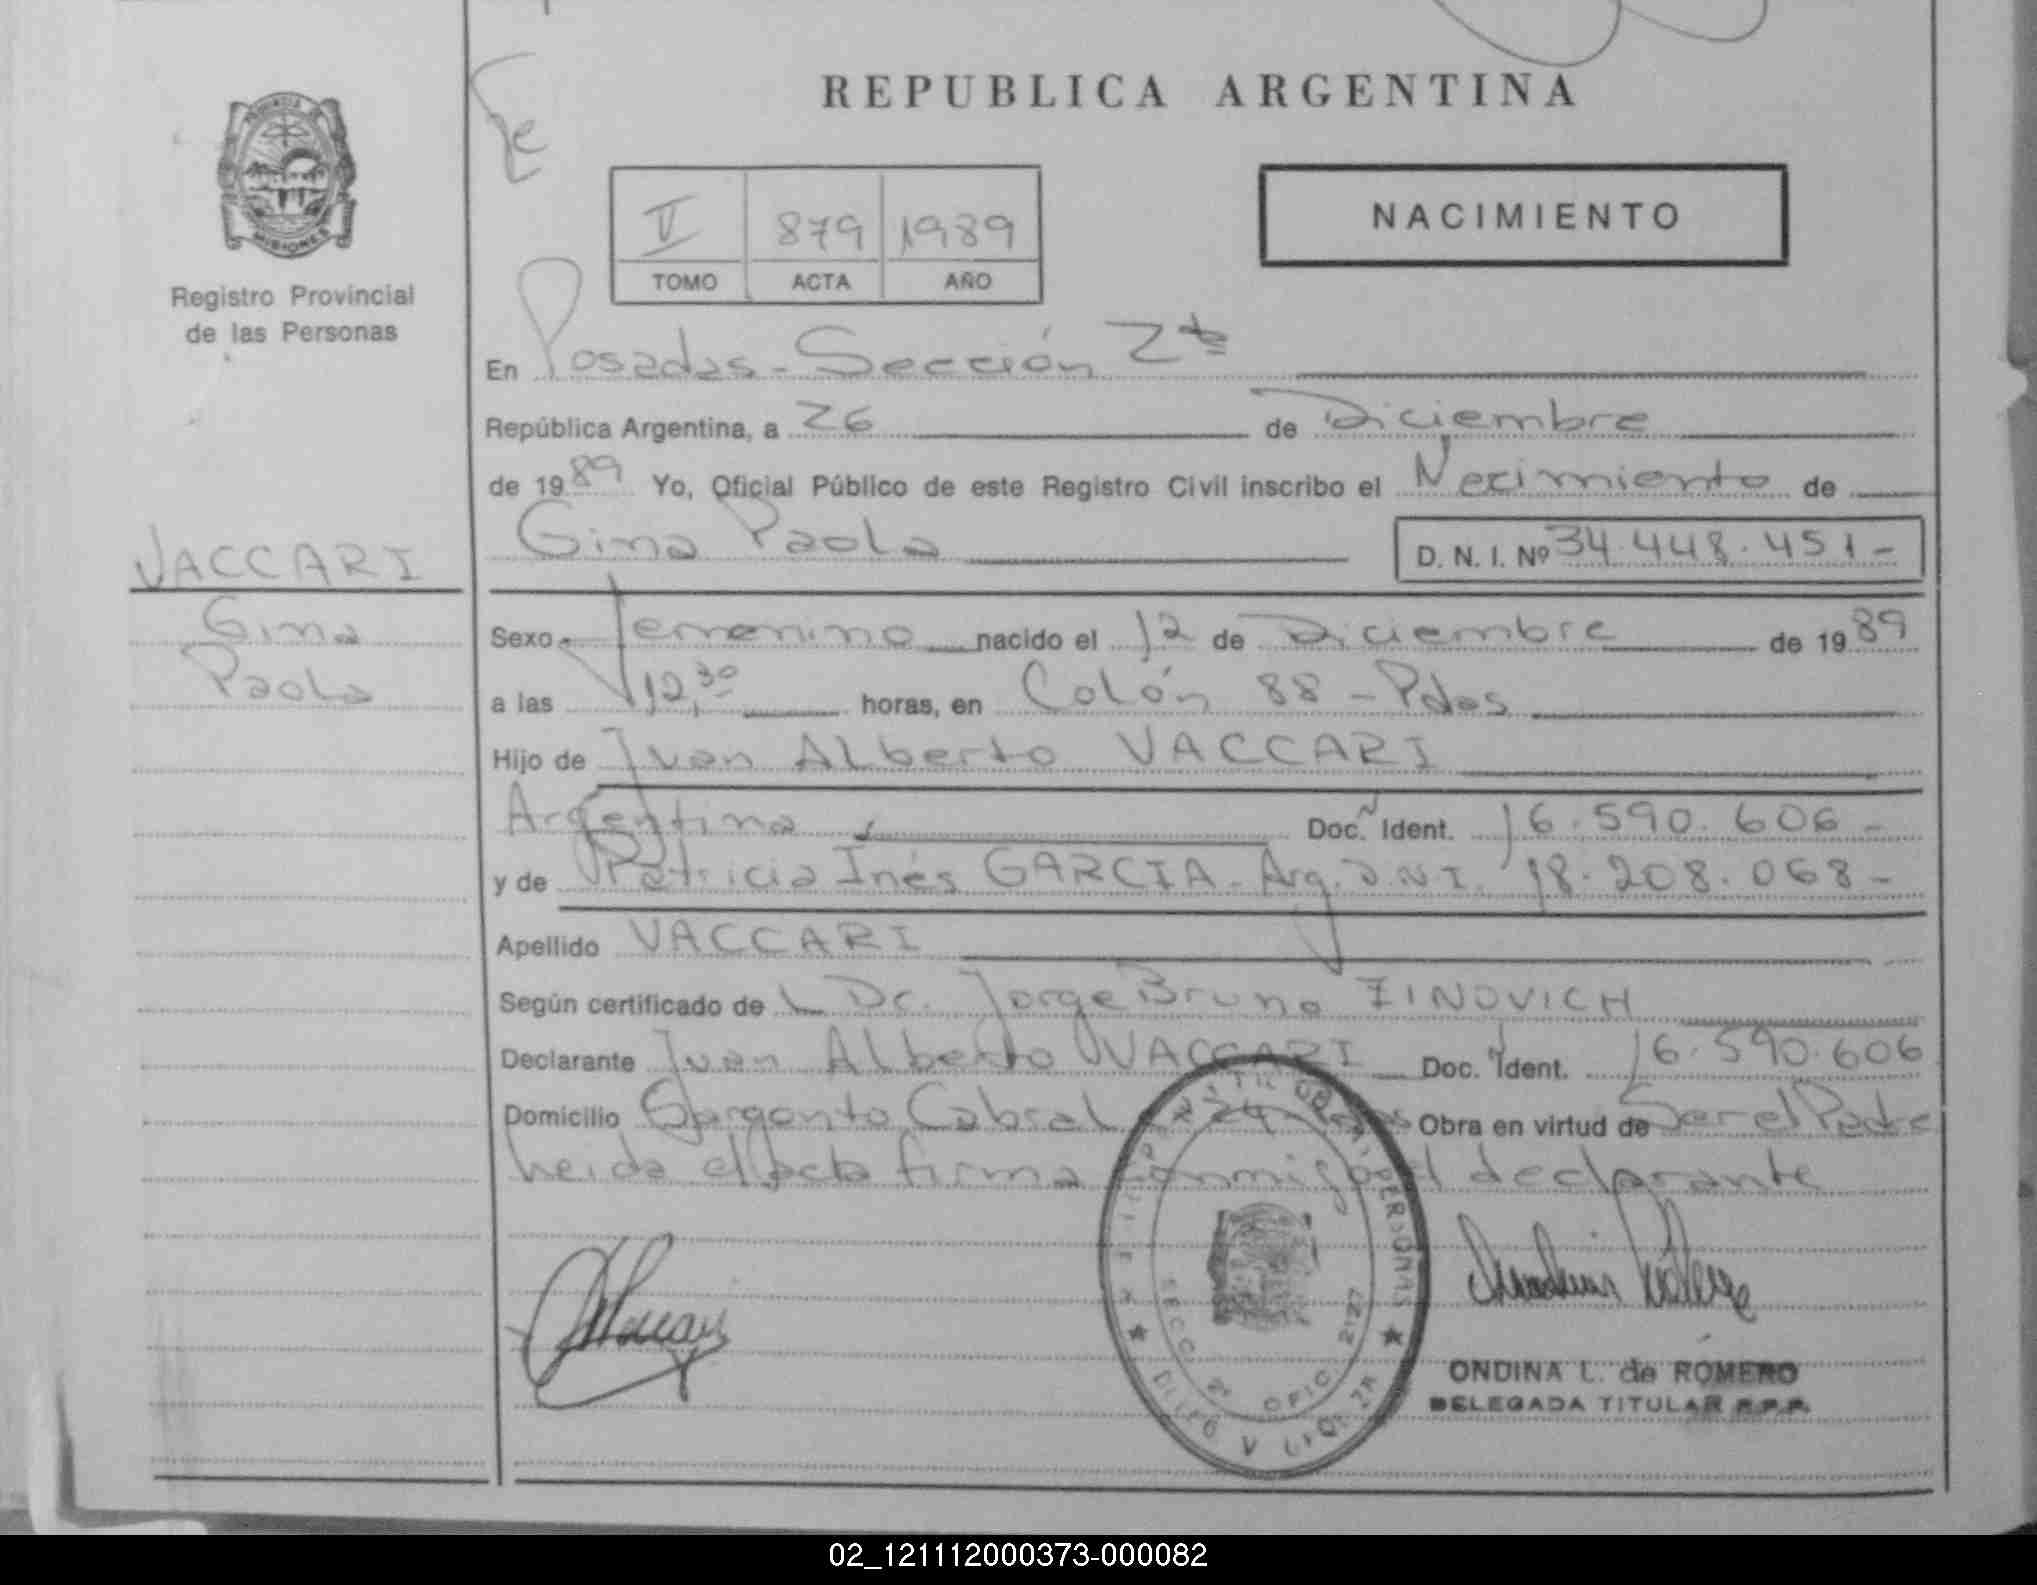 REPUBLICA ARGENTINA
PROVINCIA
MISIONES
Registro Provincial
de las Personas
V 879 1989
TOMO ACTA AÑO
NACIMIENTO
En Posadas - Sección 2da
República Argentina, a 26 de Diciembre
de 1989 Yo, Oficial Público de este Registro Civil inscribo el Nacimiento de
Gina Paola D. N. I. Nº 34.448.451-
VACCARI
Gina
Paola
Sexo Femenino nacido el 12 de Diciembre de 1989
a las 12,30 horas, en Colón 88 - Pdas
Hijo de Juan Alberto VACCARI
Argentina Doc. Ident. 16.590.606-
y de Patricia Inés GARCIA - Arg. D.N.I. 18.208.068-
Apellido VACCARI
Según certificado de Dr. Jorge Bruno ZINOVICH
Declarante Juan Alberto VACCARI Doc. Ident. 16.590.606
Domicilio Sargento Cabral Obra en virtud de Ser el Padre
leida el acta firma conmigo el declarante
PERSONAS
SECC. 2ª OFIC. 2127
ONDINA L. de ROMERO
DELEGADA TITULAR R.P.P.
02_121112000373-000082